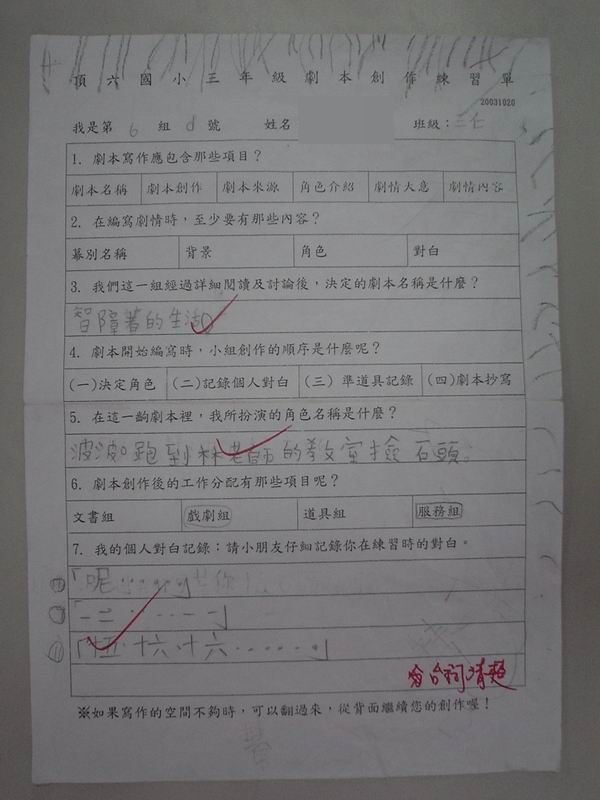 頂六國小三年級劇本創作練習單
20031020
我是第 6 組 d 號 姓名 班級：三仁
1. 劇本寫作應包含那些項目？
劇本名稱 劇本創作 劇本來源 角色介紹 劇情大意 劇情內容
2. 在編寫劇情時，至少要有那些內容？
幕別名稱 背景 角色 對白
3. 我們這一組經過詳細閱讀及討論後，決定的劇本名稱是什麼？
智障者的生活
4. 劇本開始編寫時，小組創作的順序是什麼呢？
(一)決定角色 (二)記錄個人對白 (三) 準道具記錄 (四)劇本抄寫
5. 在這一齣劇本裡，我所扮演的角色名稱是什麼？
波波跑到林老師的教室撿石頭。
6. 劇本創作後的工作分配有那些項目呢？
文書組 戲劇組 道具組 服務組
7. 我的個人對白記錄：請小朋友仔細記錄你在練習時的對白。
「呢
「一二······一一」
十六·十六·······」
※如果寫作的空間不夠時，可以翻過來，從背面繼續您的創作喔！